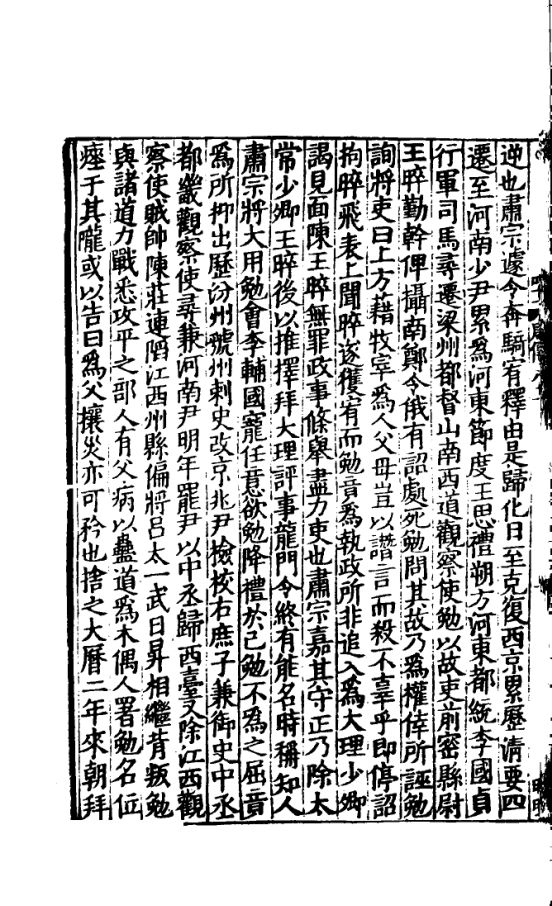 逆也肅宗遽令奔騎宥釋由是歸化日至克復西京累歷清要四
遷至河南少尹累爲河東節度王思禮朔方河東都統李國貞
行軍司馬尋遷梁州都督山南西道觀察使勉以故吏前密縣尉
王晬勤幹俾攝南鄭令俄有詔處死勉問其故乃爲權倖所誣勉
詢將吏曰上方藉牧宰爲人父母豈以譖言而殺不辜乎即停詔
拘晬飛表上聞晬遂獲宥而勉竟爲執政所非追入爲大理少卿
謁見面陳王晬無罪政事條舉盡力吏也肅宗嘉其守正乃除太
常少卿王晬後以推擇拜大理評事龍門令終有能名時稱知人
肅宗將大用勉會李輔國寵任意欲勉降禮於己勉不爲之屈竟
爲所抑出歷汾州虢州刺史改京兆尹檢校右庶子兼御史中丞
都畿觀察使尋兼河南尹明年罷尹以中丞歸西臺又除江西觀
察使賊帥陳莊連陷江西州縣偏將呂太一武日昇相繼背叛勉
與諸道力戰悉攻平之部人有父病以蠱道爲木偶人署勉名位
瘞于其隴或以告曰爲父攘災亦可矜也捨之大曆二年來朝拜